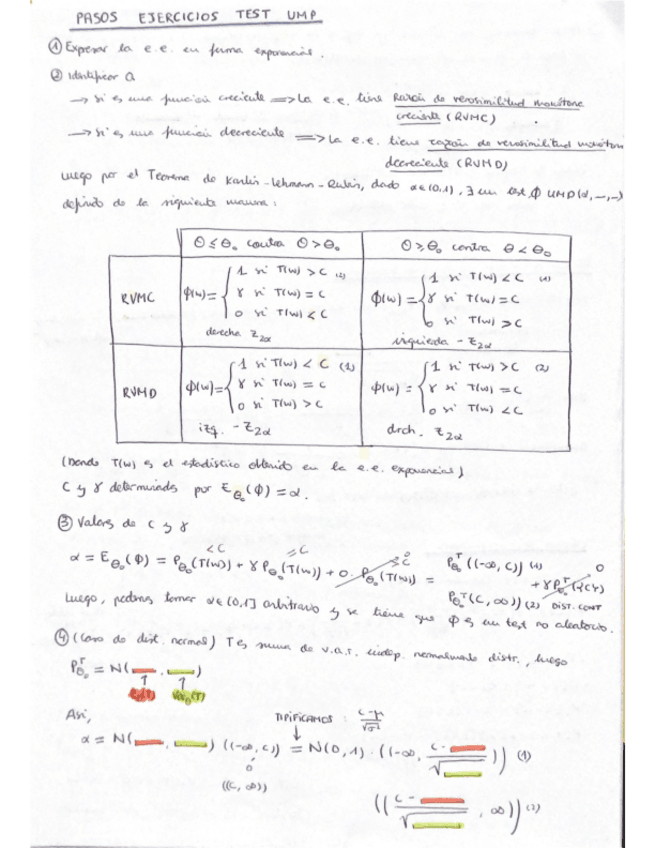 PASOS EJERCICIOS TEST UMP
① Expresar la e.e. en forma exponencial.
② Identificar Q
→ si es una función creciente ⟹ La e.e. tiene Razón de verosimilitud monótona
creciente (RVMC)
→ si es una función decreciente ⟹ La e.e. tiene razón de verosimilitud monótona
decreciente (RVMD)
Luego por el Teorema de Karlin-Lehmann-Rubin, dado α∈(0,1), ∃ un test ϕ UMP(α, —, —)
definido de la siguiente manera:
θ ≤ θ₀ contra θ > θ₀
θ ≥ θ₀ contra θ < θ₀
RVMC
ϕ(w) = { 1 si T(w) > C (2)
γ si T(w) = C
0 si T(w) < C
derecha z₂α
ϕ(w) = { 1 si T(w) < C (1)
γ si T(w) = C
0 si T(w) > C
izquierda -z₂α
RVMD
ϕ(w) = { 1 si T(w) < C (1)
γ si T(w) = C
0 si T(w) > C
izq. -z₂α
ϕ(w) = { 1 si T(w) > C (2)
γ si T(w) = C
0 si T(w) < C
drch. z₂α
(Donde T(w) es el estadístico obtenido en la e.e. exponencial)
C y γ determinados por E_θ₀(ϕ) = α.
③ Valores de C y γ
α = E_θ₀(ϕ) = P_θ₀(T(w)) + γ P_θ₀(T(w)) + 0 · P_θ₀(T(w)) =
P^T_θ₀((-∞, C)) (1)
+ γ P^T_θ₀({C}) 0
P^T_θ₀(C, ∞)) (2) DIST. CONT
Luego, podemos tomar γ∈(0,1] arbitrario y se tiene que ϕ es un test no aleatorio.
④ (Caso de dist. normal) T es suma de v.a.r. indep. normalmente distr., luego
P^T_θ₀ = N( , )
Así,
TIPIFICAMOS : (C-μ)/√σ²
α = N( , ) ((-∞, C)) = N(0,1) · ((-∞, (C - )/√ )) (1)
o
((C, ∞))
(((C - )/√ , ∞)) (2)